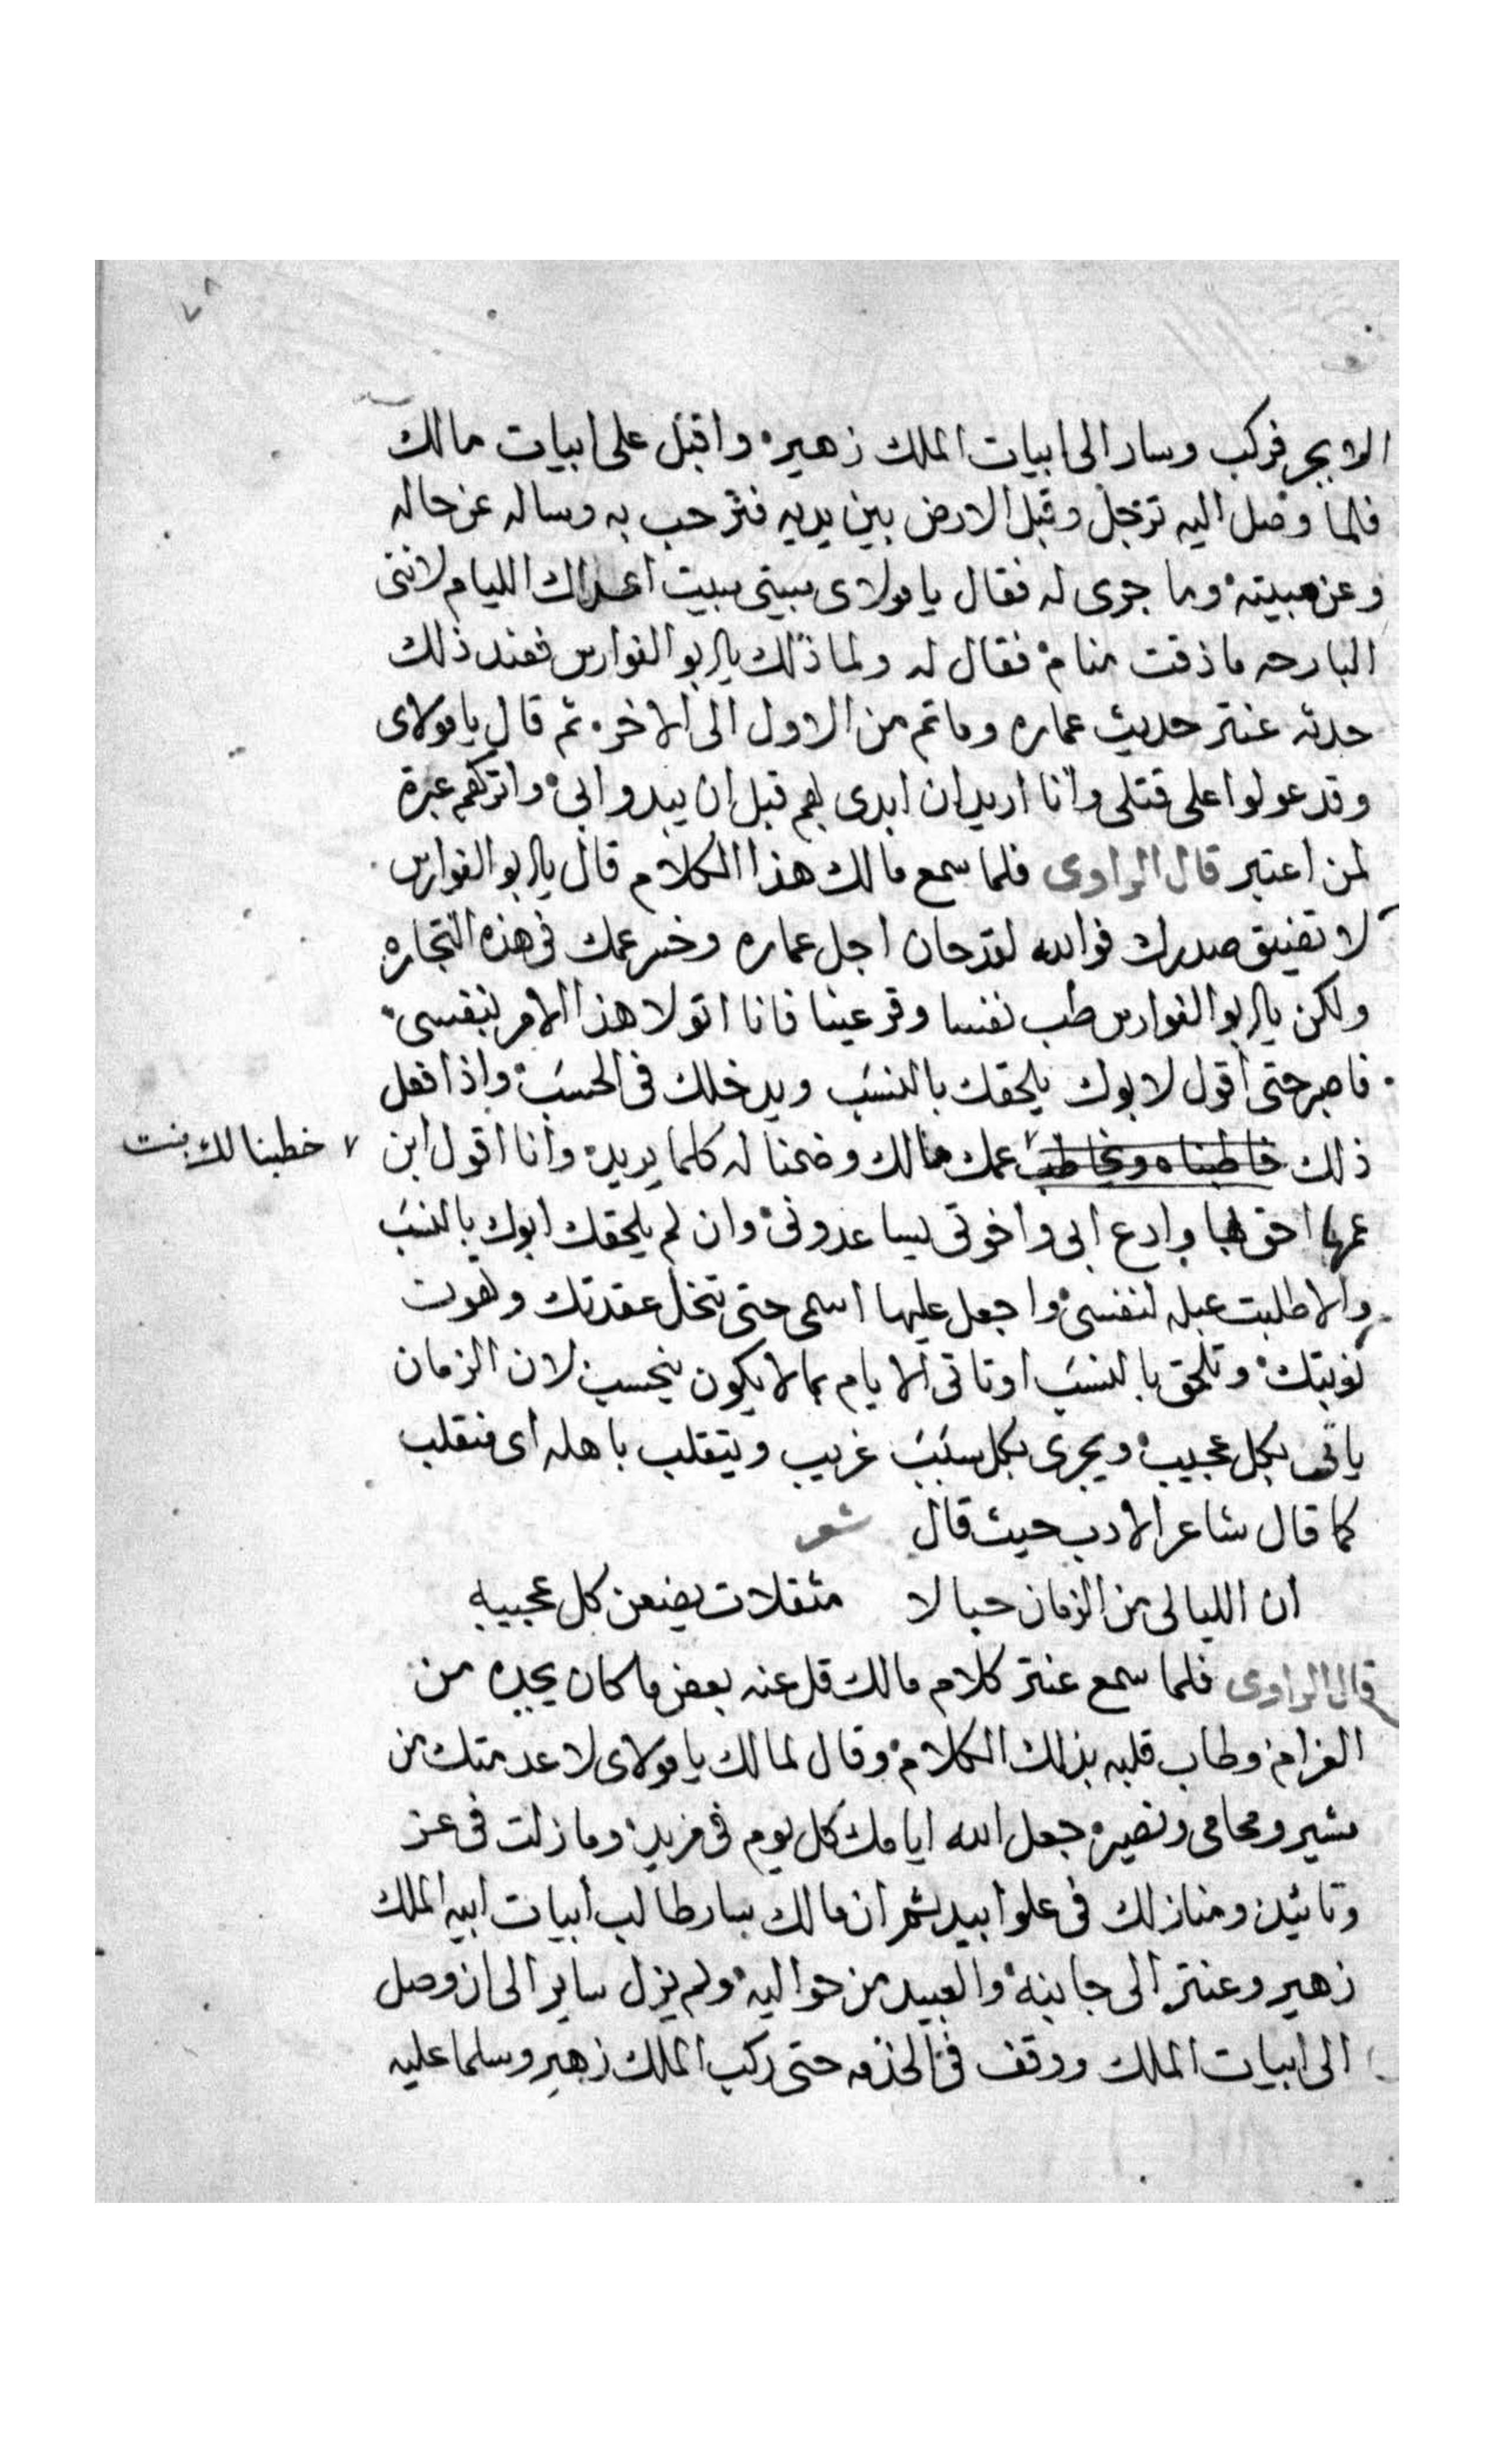 ٧٨
الابجر فركب وسار الى ابيات الملك زهير واقبل على ابيات مالك
فلما وصل اليه ترجل وقبل الارض بين يديه فترحب به وساله عن حاله
وعن مبيته وما جرى له فقال يا مولاى مبيتى مبيت اعداك الليام لاننى
البارحه ما ذقت منام فقال له ولما ذلك يا ابو الفوارس فعند ذلك
حدثه عنتر حديث عماره وما تم من الاول الى الاخر ثم قال يا مولاى
وقد عولوا على قتلى وانا اريد ان ابدى بهم قبل ان يبدوا بى واتركهم عبرة
لمن اعتبر قال الراوى فلما سمع مالك هذا الكلام قال يا ابو الفوارس
لا تضيق صدرك فوالله لقد حان اجل عماره وخسر عمك فى هذه التجاره
ولكن يا ابو الفوارس طب نفسا وقر عينا فانا اتولا هذا الامر بنفسى
فاصبر حتى اقول لابوك يلحقك بالنسب ويدخلك فى الحسب واذا فعل
ذلك خاطبناه ويخاطب عمك مالك وضمنا له كلما يريد وانا اقول ابن
خطبنا لك بنت
عمها احق بها وادع ابى واخوتى يساعدونى وان لم يلحقك ابوك بالنسب
والا طلبت عبله لنفسى واجعل عليها اسمى حتى تنحل عقدتك وتهون
نوبتك وتلحق بالنسب او تاتى الايام بما لا يكون ينحسب لان الزمان
ياتى بكل عجيب ويجرى بكل سبب غريب ويتقلب باهله اى منقلب
كما قال شاعر الادب حيث قال شعر
ان الليالى من الزمان حبالا مثقلات يضعن كل عجيبه
قال الراوى فلما سمع عنتر كلام مالك قل عنه بعض ما كان يجده من
الغرام وطاب قلبه بذلك الكلام وقال لمالك يا مولاى لا عدمتك من
مشير ومحامى ونصير جعل الله ايامك كل يوم فى مزيد وما زلت فى عز
وتائيد ومنازلك فى علو ابيد ثم ان مالك سار طالب ابيات ابيه الملك
زهير وعنتر الى جانبه والعبيد من حواليه ولم يزل ساير الى ان وصل
الى ابيات الملك ووقف فى الخدمه حتى ركب الملك زهير وسلما عليه